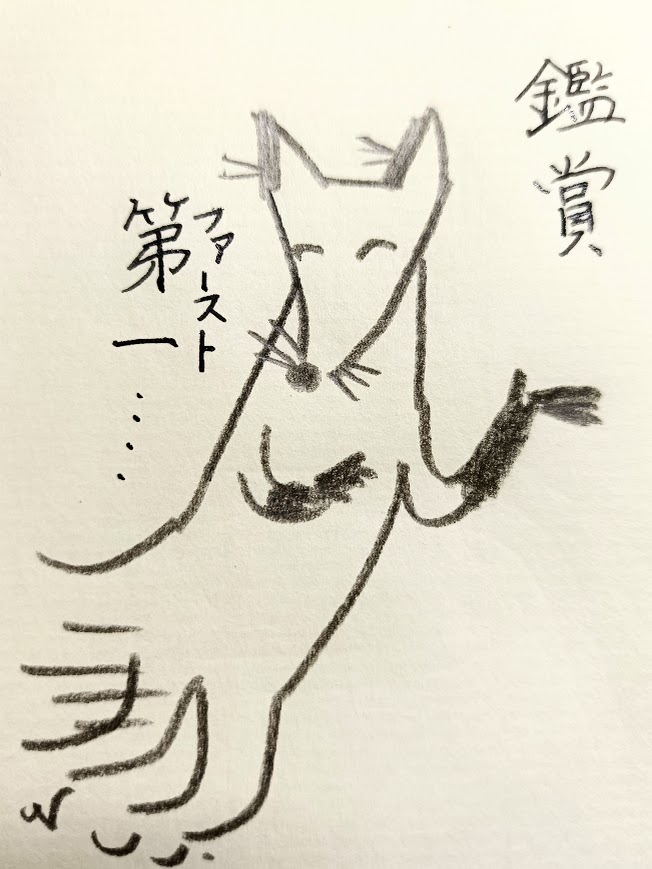 鑑賞
ファースト
第一……